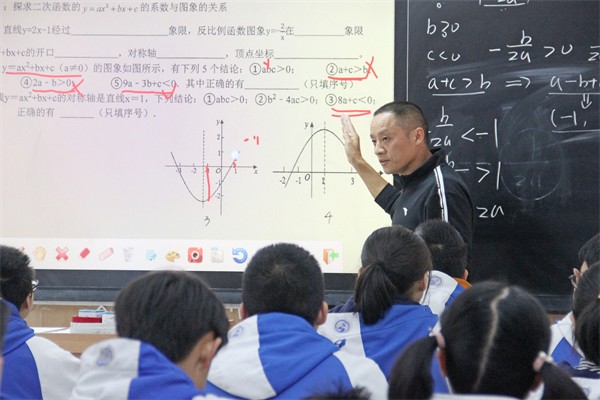 探求二次函数的 y=ax²+bx+c 的系数与图象的关系
直线y=2x-1经过________象限，反比例函数图象y=-2/x在________象限
+bx+c的开口________，对称轴________，顶点坐标________.
y=ax²+bx+c（a≠0）的图象如图所示，有下列5个结论：①abc>0；②a+c>b
④2a-b>0 ⑤9a-3b+c<0 其中正确的有________（只填序号）
线y=ax²+bx+c的对称轴是直线x=1，下列结论：①abc>0；②b²-4ac>0；③8a+c<0；
正确的有________（只填序号）.
y
2
1
-3 -1 1 x
-1
-2
3
y
-2 -1 1 3
4
b≥0
c<0 -b/2a>0
a+c>b ⇒ a-b+
(-1,
b/2a<-1
-b/2a>-1
2a